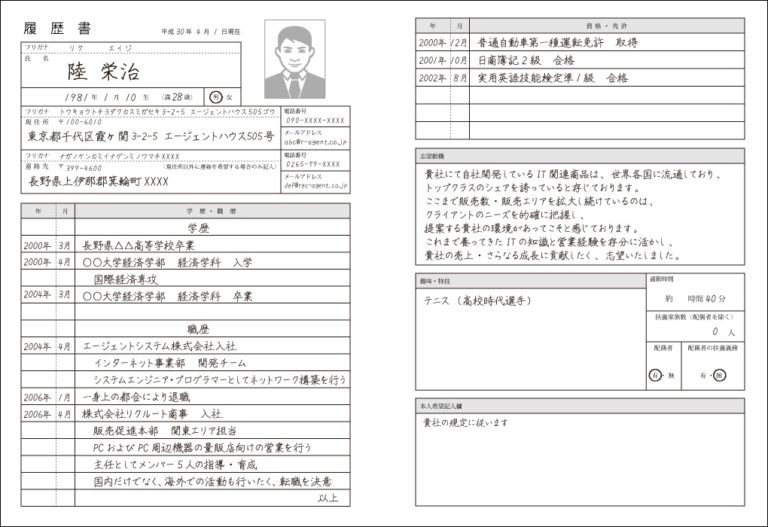 履歴書
平成30年 4月 1日現在
フリガナ リク エイジ
氏名
陸 栄治
1981年 1月 10生 (満28歳) 男 女
フリガナ トウキョウトチヨダクカスミガセキ3-2-5 エージェントハウス505ゴウ
現住所 〒100-6010
東京都千代区霞ヶ関3-2-5 エージェントハウス505号
電話番号
090-XXXX-XXXX
メールアドレス
abc@r-agent.co.jp
フリガナ ナガノケンカミイナゲンミノワマチXXXX
連絡先 〒399-4600 (現住所以外に連絡を希望する場合のみ記入)
長野県上伊那郡箕輪町XXXX
電話番号
0265-79-XXXX
メールアドレス
def@rec-agent.co.jp
年 月 学歴・職歴
学歴
2000年 3月 長野県△△高等学校卒業
2000年 4月 〇〇大学経済学部 経済学科 入学
国際経済専攻
2004年 3月 〇〇大学経済学部 経済学科 卒業
職歴
2004年 4月 エージェントシステム株式会社入社
インターネット事業部 開発チーム
システムエンジニア・プログラマーとしてネットワーク構築を行う
2006年 1月 一身上の都合により退職
2006年 4月 株式会社リクルート商事 入社
販売促進本部 関東エリア担当
PCおよびPC周辺機器の量販店向けの営業を行う
主任としてメンバー5人の指導・育成
国内だけでなく、海外での活動も行いたく、転職を決意
以上
年 月 資格・免許
2000年 12月 普通自動車第一種運転免許 取得
2001年 10月 日商簿記2級 合格
2002年 8月 実用英語技能検定準1級 合格
志望動機
貴社にて自社開発しているIT関連商品は、世界各国に流通しており、
トップクラスのシェアを誇っていると存じております。
ここまで販売数・販売エリアを拡大し続けているのは、
クライアントのニーズを的確に把握し、
提案する貴社の環境があってこそと感じております。
これまで養ってきたITの知識と営業経験を存分に活かし、
貴社の売上・さらなる成長に貢献したく、志望いたしました。
趣味・特技
テニス (高校時代選手)
通勤時間
約 時間40分
扶養家族数(配偶者を除く)
0 人
配偶者 配偶者の扶養義務
有・無 有・無
本人希望記入欄
貴社の規定に従います